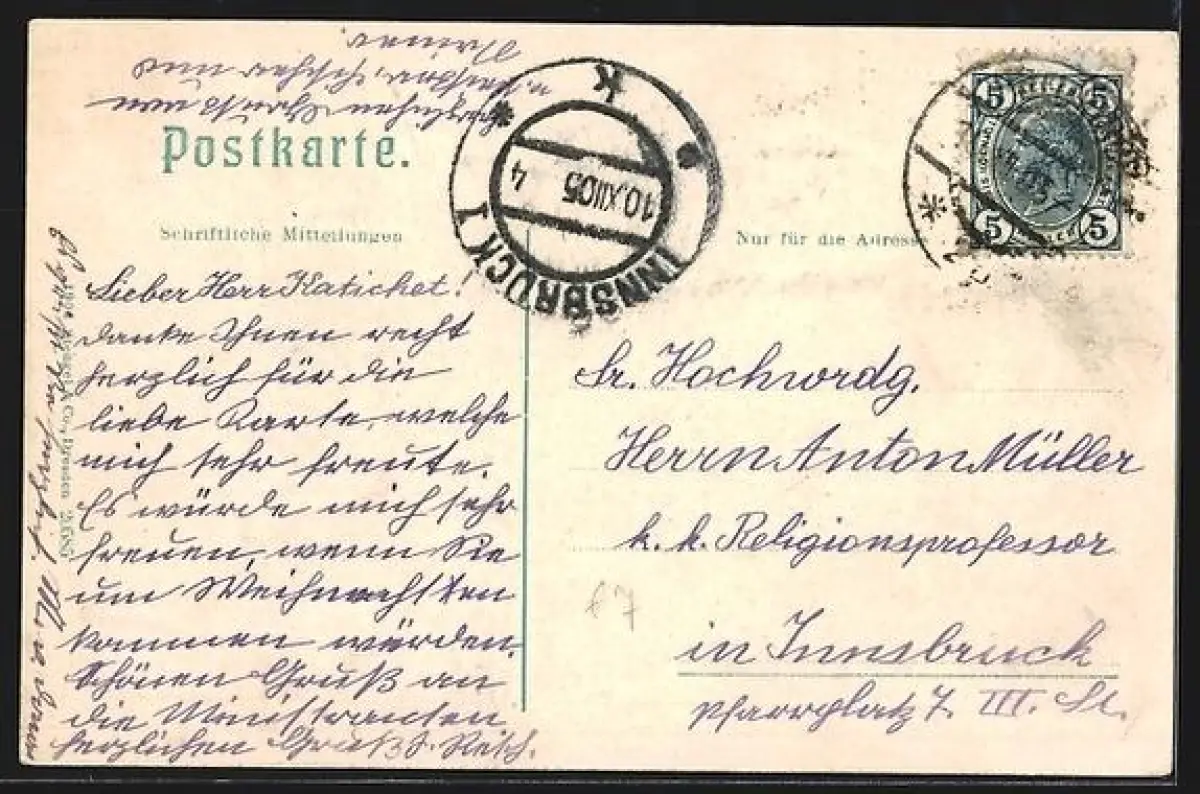 Postkarte.
Schriftliche Mitteilungen
Nur für die Adresse
Lieber Herr Katichet!
danke Ihnen recht
herzlich für die
liebe Karte, welche
mich sehr freute.
Es würde mich sehr
freuen, wenn Sie
um Weihnachsten
kommen würden.
Schönen Gruß an
die Ministranten
herzlichen Gruß
Sr. Hochwrdg.
Herrn Anton Müller
k. k. Religionsprofessor
in Innsbruck
Pfarrplatz 7. III. St.
INNSBRUCK 1
10.XII.05
4
* K
5 5
5 5
Co., Dresden
67